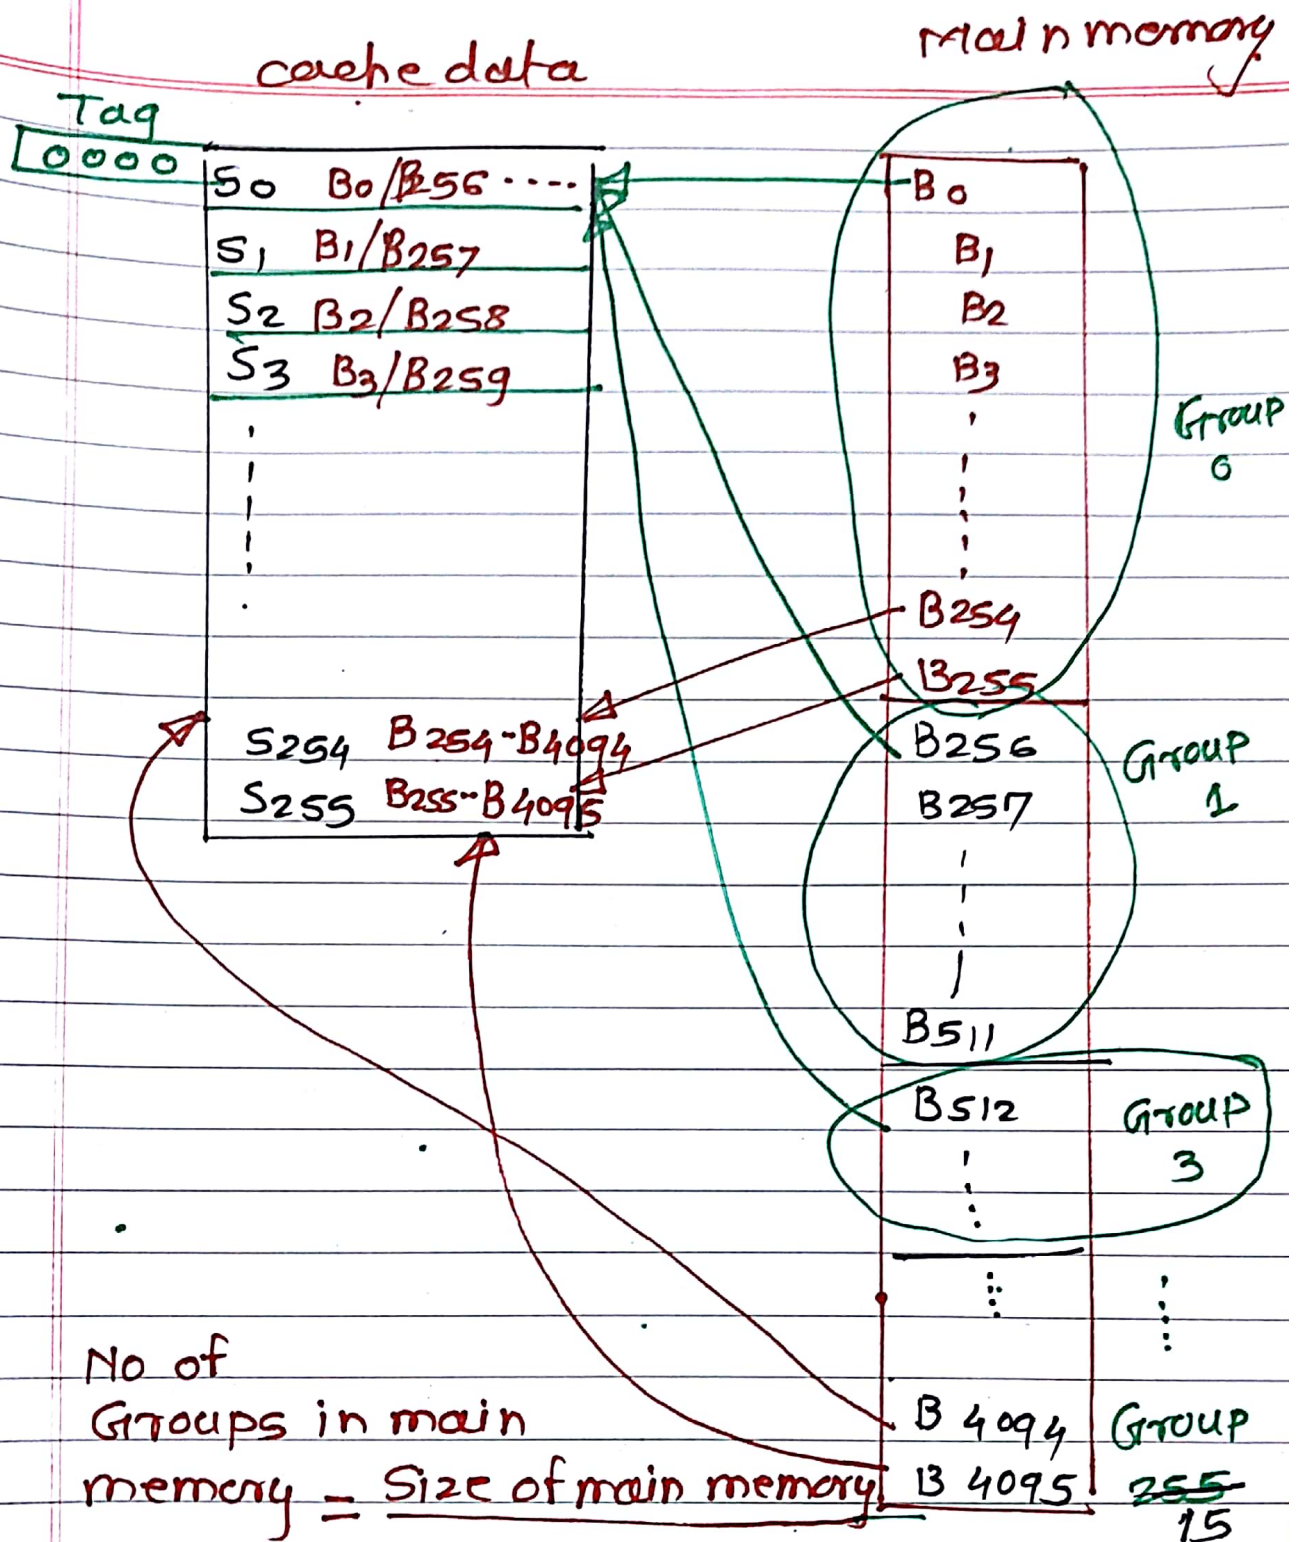 cache data
Main memory
Tag
0000
S0 B0/B256 ....
S1 B1/B257
S2 B2/B258
S3 B3/B259
S254 B254-B4094
S255 B255--B4095
B0
B1
B2
B3
Group
0
B254
B255
B256
B257
Group
1
B511
B512
Group
3
B 4094
B 4095
Group
255
15
No of
Groups in main
memory = Size of main memory